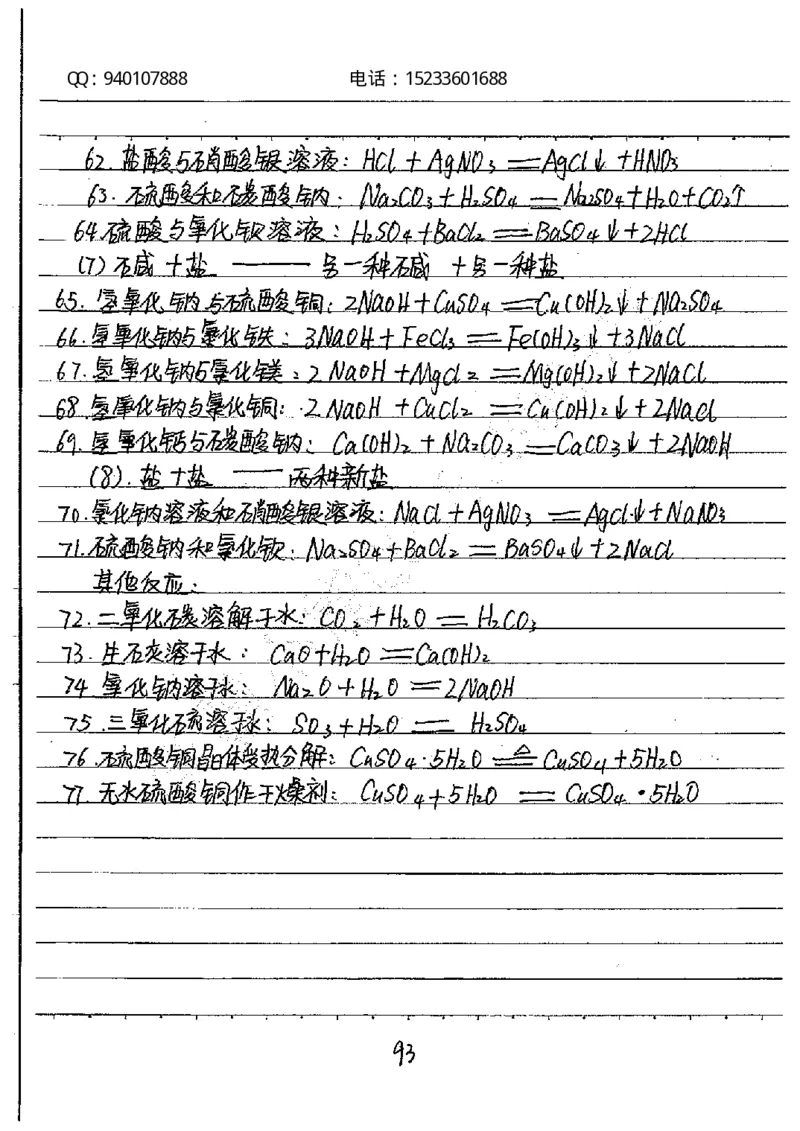 QQ：940107888 电话：15233601688
62. 盐酸与硝酸银溶液：HCl + AgNO₃ == AgCl↓ + HNO₃
63. 硫酸和碳酸钠：Na₂CO₃ + H₂SO₄ == Na₂SO₄ + H₂O + CO₂↑
64. 硫酸与氯化钡溶液：H₂SO₄ + BaCl₂ == BaSO₄↓ + 2HCl
(7) 碱 + 盐 —— 另一种碱 + 另一种盐
65. 氢氧化钠与硫酸铜：2NaOH + CuSO₄ == Cu(OH)₂↓ + Na₂SO₄
66. 氢氧化钠与氯化铁：3NaOH + FeCl₃ == Fe(OH)₃↓ + 3NaCl
67. 氢氧化钠与氯化镁：2NaOH + MgCl₂ == Mg(OH)₂↓ + 2NaCl
68. 氢氧化钠与氯化铜：2NaOH + CuCl₂ == Cu(OH)₂↓ + 2NaCl
69. 氢氧化钙与碳酸钠：Ca(OH)₂ + Na₂CO₃ == CaCO₃↓ + 2NaOH
(8). 盐 + 盐 —— 两种新盐
70. 氯化钠溶液和硝酸银溶液：NaCl + AgNO₃ == AgCl↓ + NaNO₃
71. 硫酸钠和氯化钡：Na₂SO₄ + BaCl₂ == BaSO₄↓ + 2NaCl
其他反应：
72. 二氧化碳溶解于水：CO₂ + H₂O == H₂CO₃
73. 生石灰溶于水：CaO + H₂O == Ca(OH)₂
74. 氧化钠溶于水：Na₂O + H₂O == 2NaOH
75. 三氧化硫溶于水：SO₃ + H₂O == H₂SO₄
76. 硫酸铜晶体受热分解：CuSO₄·5H₂O =△= CuSO₄ + 5H₂O
77. 无水硫酸铜作干燥剂：CuSO₄ + 5H₂O == CuSO₄·5H₂O
93